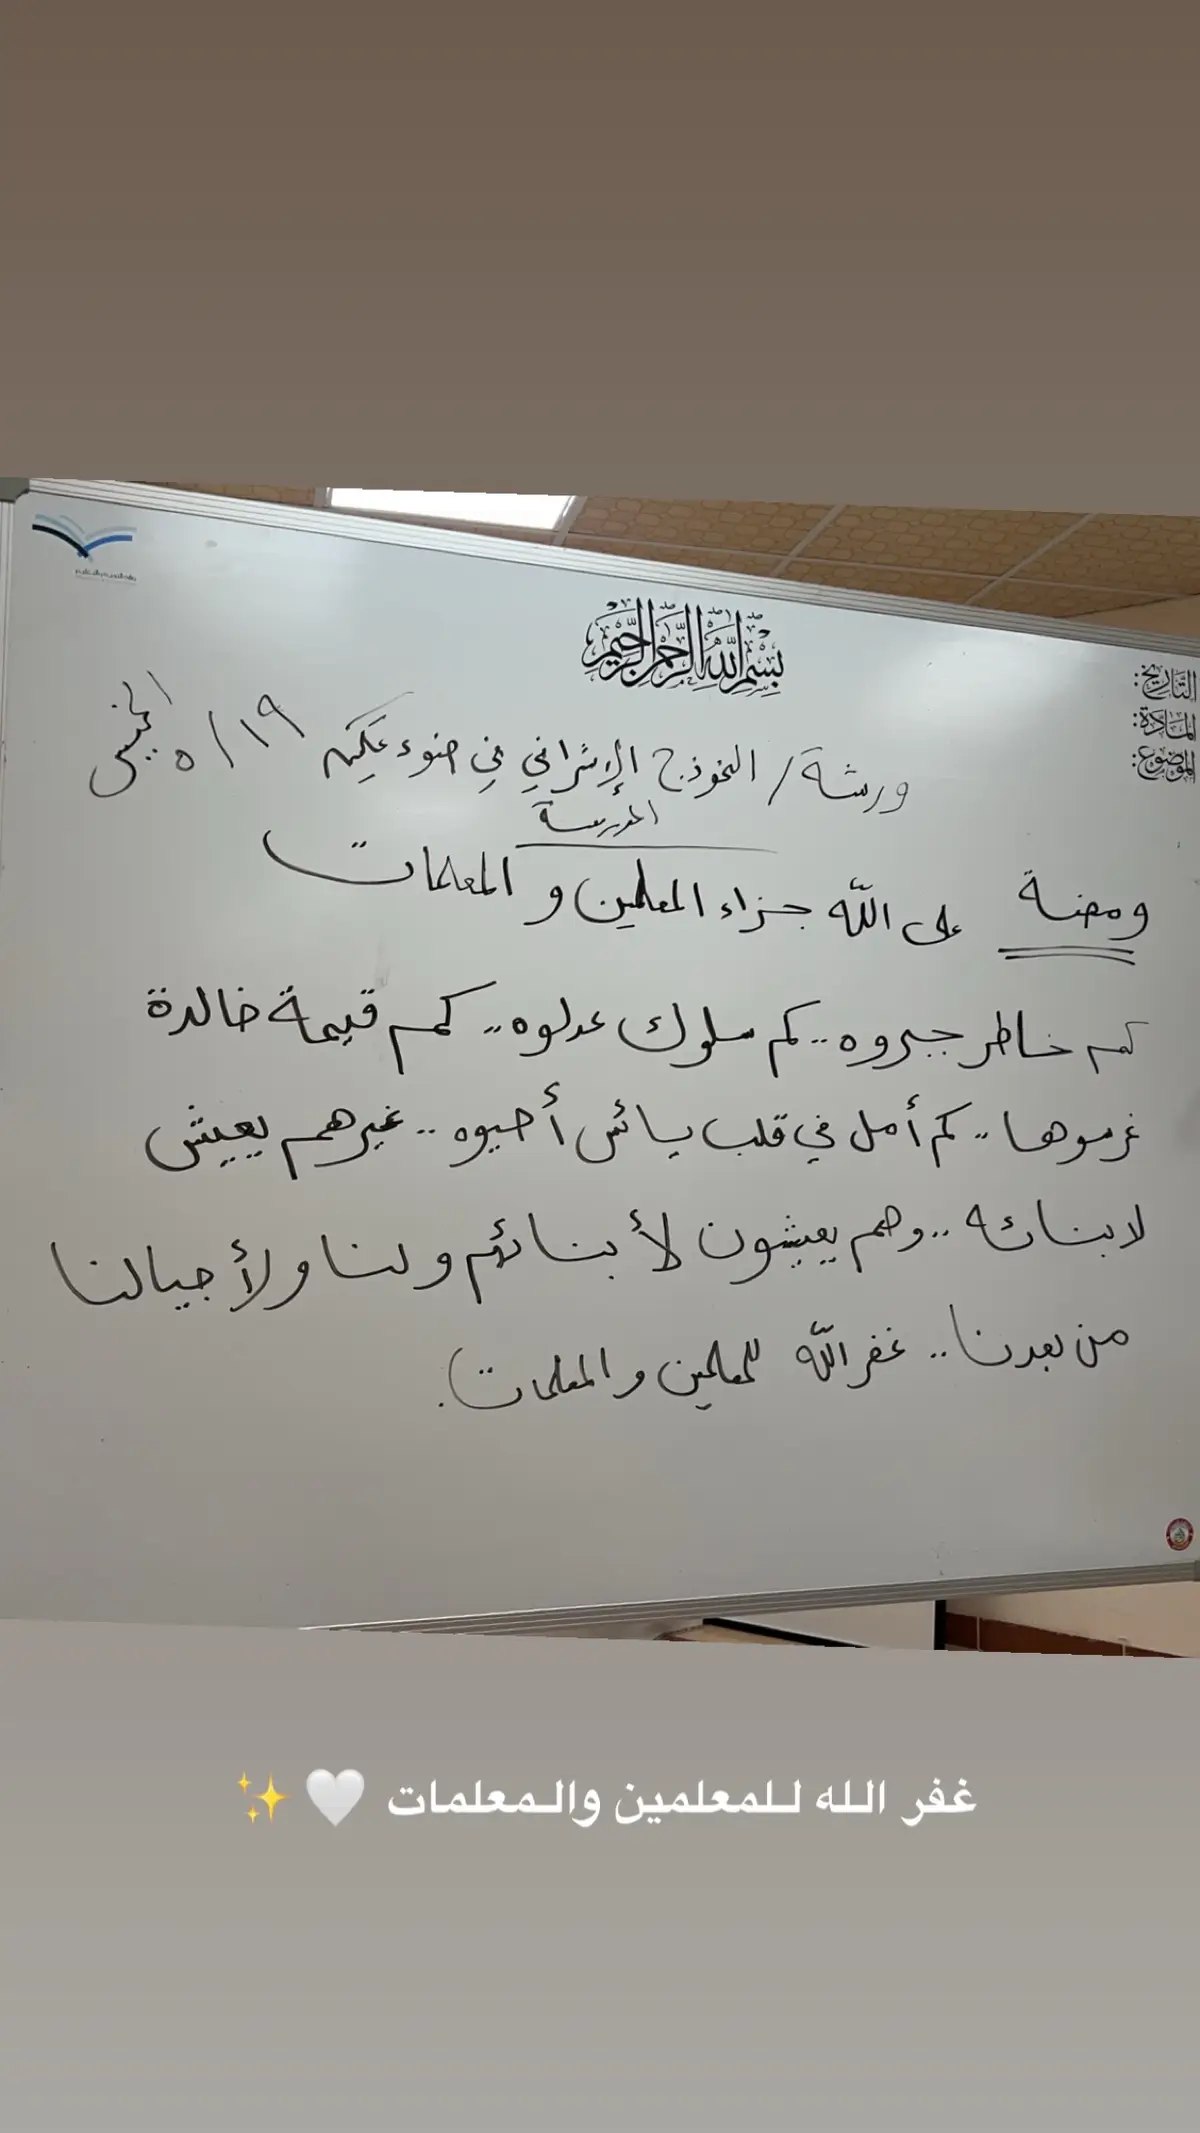 بسم الله الرحمن الرحيم
التاريخ:
المادة:
الموضوع:
الخميس ١٩ / ٥
ورشة / النموذج الإشرافي في ضوء تمكين
المدرسة
ومضة على الله جزاء المعلمين و المعلمات
كم خاطر جبروه .. كم سلوك عدلوه .. كم قيمة خالدة
غرسوها .. كم أمل في قلب يائس أحيوه .. غيرهم يعيش
لابنائه .. وهم يعيشون لأبنائهم ولنا ولأجيالنا
من بعدنا .. غفر الله للمعلمين والمعلمات.
غفر الله للمعلمين والمعلمات 🤍✨